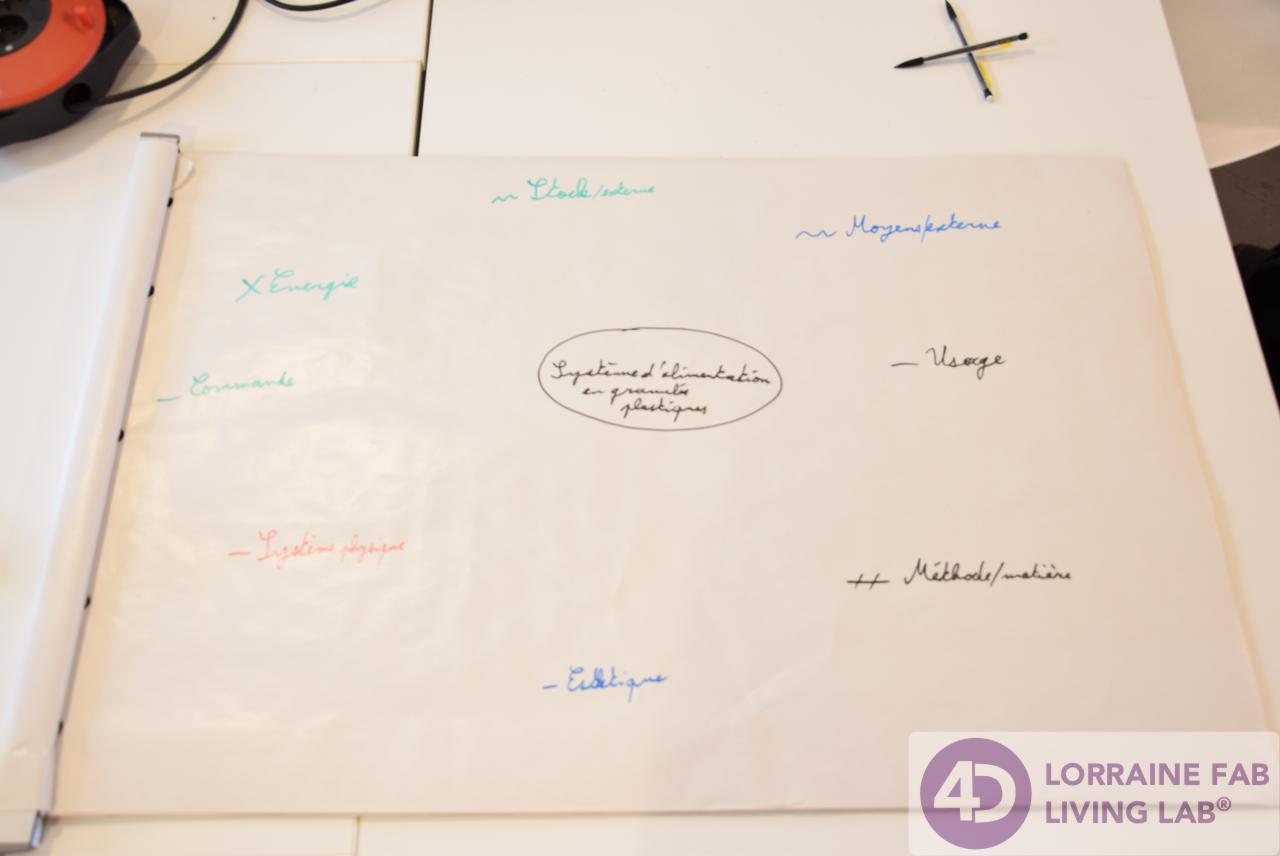 ~~ Stock/externe
~~ Moyens/externe
X Energie
— Commande
Système d'alimentation
en granulés
plastiques
— Usage
— Système physique
++ Méthode/matière
— Esthétique
4D
LORRAINE FAB
LIVING LAB®